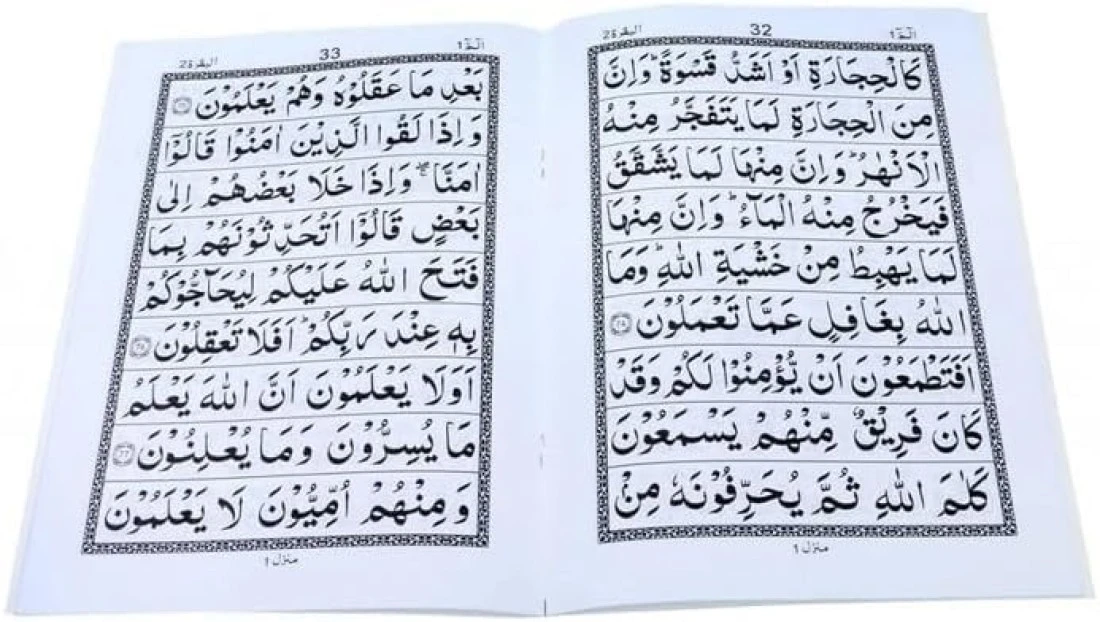 الٓمٓ ١ 32 البقرة ٢
كَالْحِجَارَةِ اَوْ اَشَدُّ قَسْوَةً ؕ وَاِنَّ
مِنَ الْحِجَارَةِ لَمَا يَتَفَجَّرُ مِنْهُ
الْاَنْهٰرُ ؕ وَاِنَّ مِنْهَا لَمَا يَشَّقَّقُ
فَيَخْرُجُ مِنْهُ الْمَآءُ ؕ وَاِنَّ مِنْهَا
لَمَا يَهْبِطُ مِنْ خَشْيَةِ اللّٰهِ ؕ وَمَا
اللّٰهُ بِغَافِلٍ عَمَّا تَعْمَلُوْنَ
اَفَتَطْمَعُوْنَ اَنْ يُّؤْمِنُوْا لَكُمْ وَقَدْ
كَانَ فَرِيْقٌ مِّنْهُمْ يَسْمَعُوْنَ
كَلٰمَ اللّٰهِ ثُمَّ يُحَرِّفُوْنَهٗ مِنْۢ
منزل ١
الٓمٓ ١ 33 البقرة ٢
بَعْدِ مَا عَقَلُوْهُ وَهُمْ يَعْلَمُوْنَ
وَاِذَا لَقُوا الَّذِيْنَ اٰمَنُوْا قَالُوْٓا
اٰمَنَّا ۖۚ وَاِذَا خَلَا بَعْضُهُمْ اِلٰى
بَعْضٍ قَالُوْٓا اَتُحَدِّثُوْنَهُمْ بِمَا
فَتَحَ اللّٰهُ عَلَيْكُمْ لِيُحَآجُّوْكُمْ
بِهٖ عِنْدَ رَبِّكُمْ ؕ اَفَلَا تَعْقِلُوْنَ
اَوَلَا يَعْلَمُوْنَ اَنَّ اللّٰهَ يَعْلَمُ
مَا يُسِرُّوْنَ وَمَا يُعْلِنُوْنَ
وَمِنْهُمْ اُمِّيُّوْنَ لَا يَعْلَمُوْنَ
منزل ١